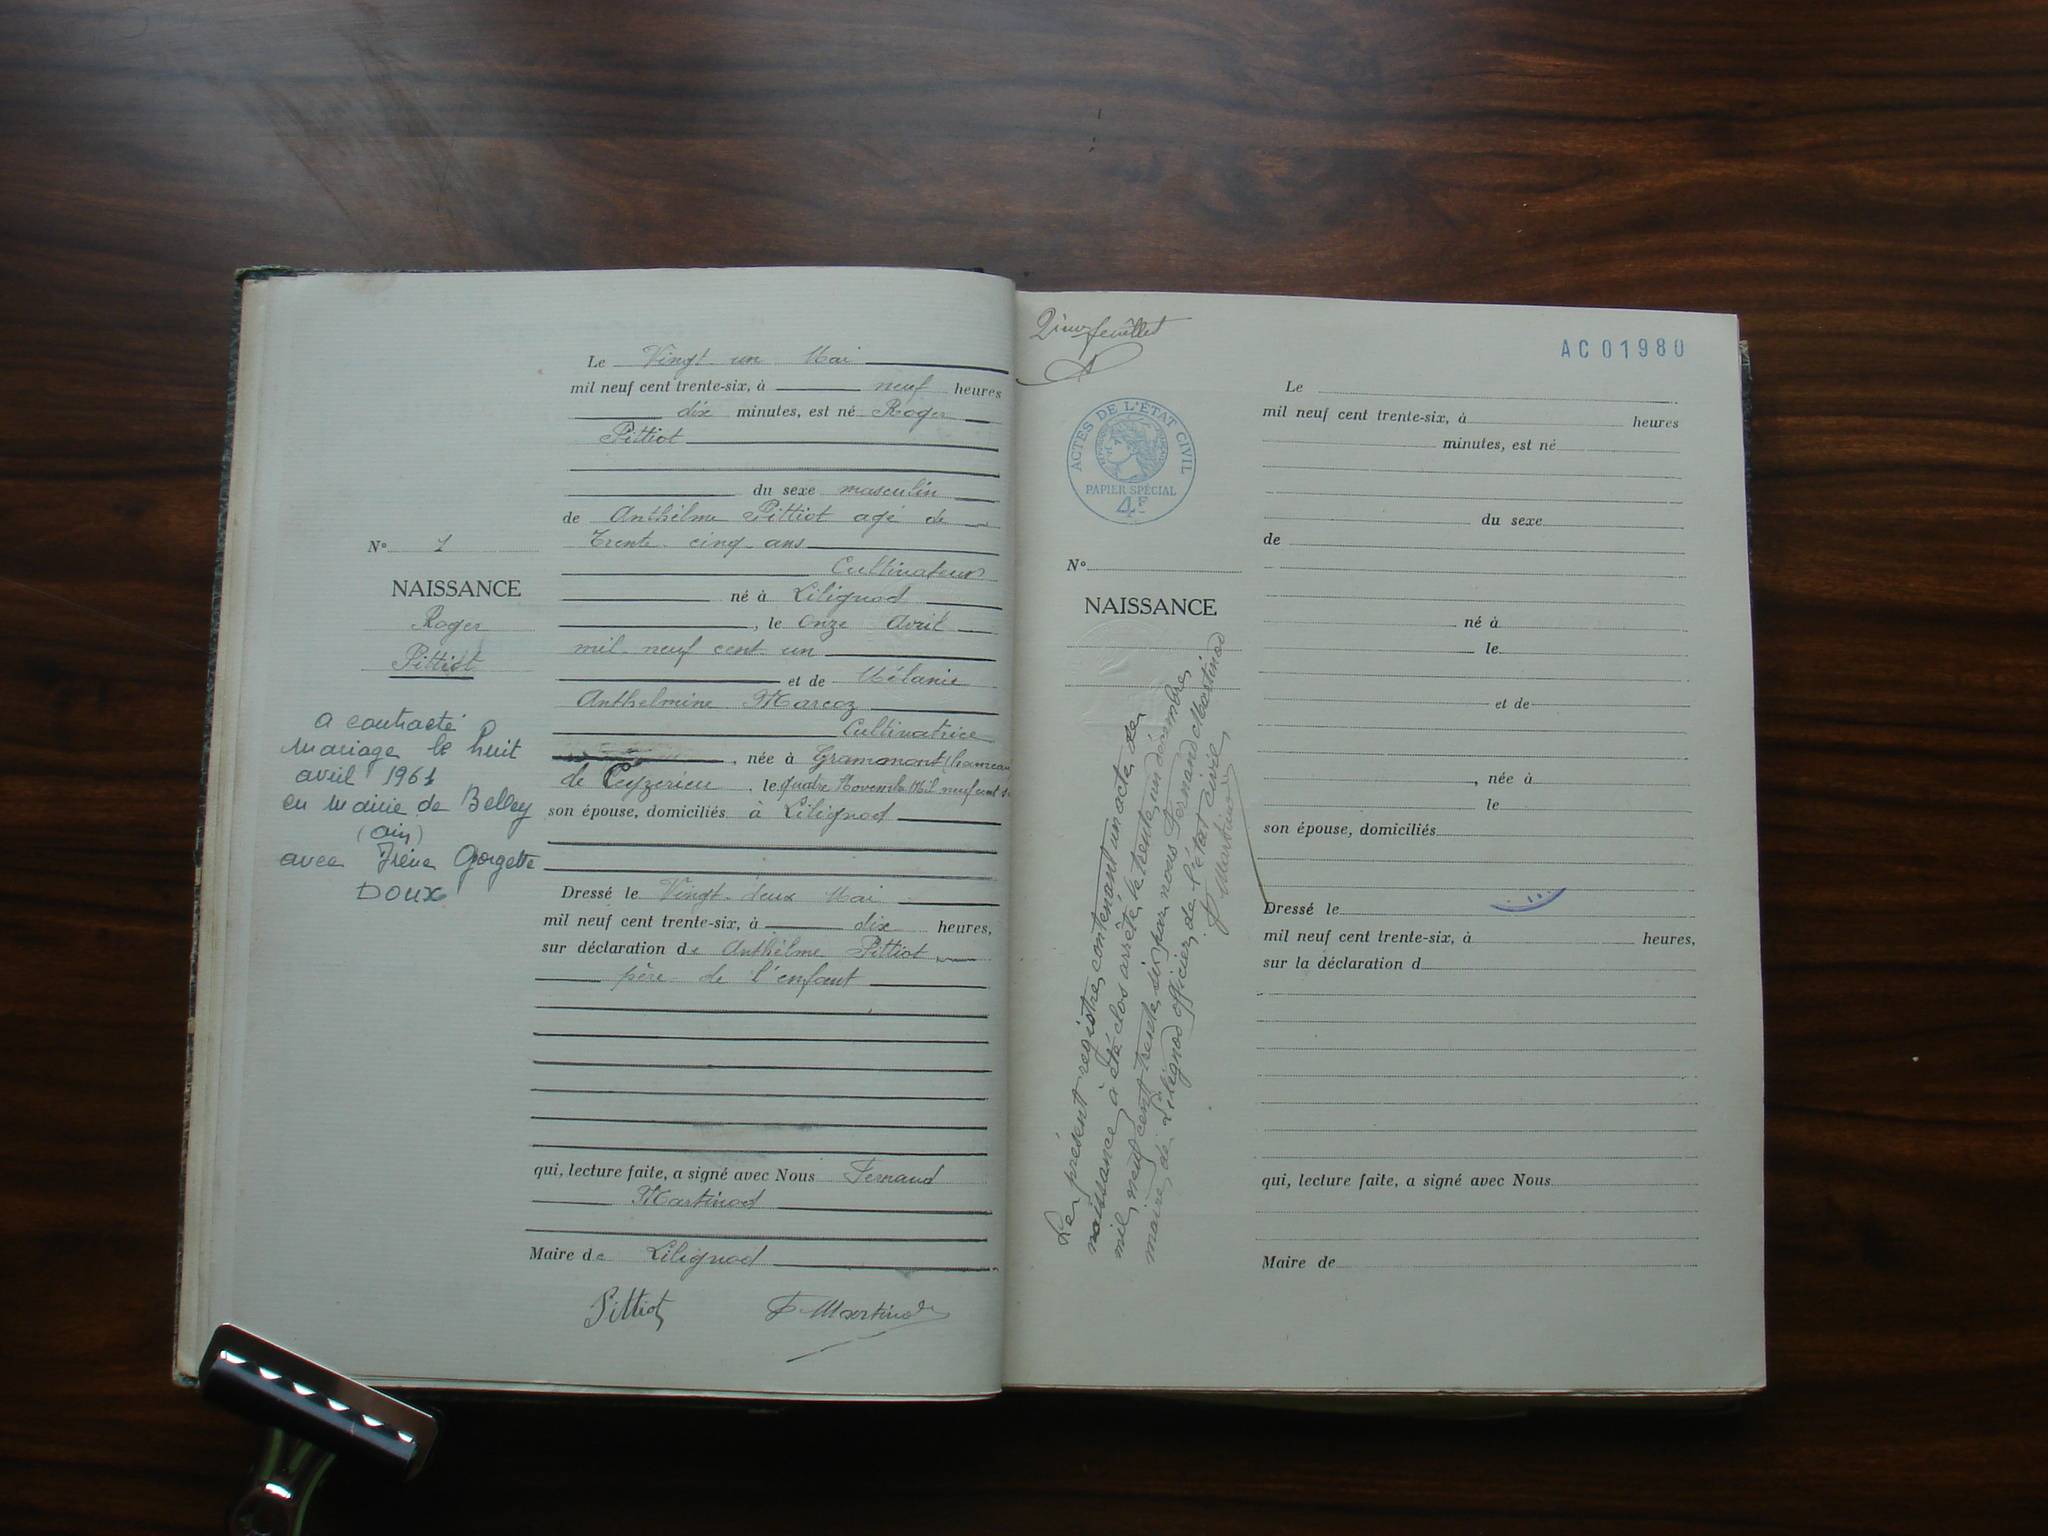 Le Vingt un Mai
mil neuf cent trente-six, à neuf heures
dix minutes, est né Roger
Pittiot
du sexe masculin
de Anthélme Pittiot agé de
Trente cinq ans
Cultivateur
né à Lilignod
, le Onze Avril
mil neuf cent un
et de Mélanie
Anthelmine Marcoz
Cultivatrice
, née à Grammont (hameau
de Ceyzerieu , le quatre Novembre Mil neuf cent
son épouse, domiciliés à Lilignod
Dressé le Vingt deux Mai
mil neuf cent trente-six, à dix heures,
sur déclaration de Anthélme Pittiot
père de l'enfant
qui, lecture faite, a signé avec Nous Fernand
Martinod
Maire de Lilignod
Pittiot F. Martinod
N° 1
NAISSANCE
Roger
Pittiot
a contracté
mariage le huit
avril 1961
en mairie de Belley
(ain)
avec Irène Georgette
DOUX
2ième feuillet
AC 01980
ACTES DE L'ÉTAT CIVIL
PAPIER SPÉCIAL
4F
N°
NAISSANCE
Le présent registre contenant un acte de
naissance a été clos arrêté le trente un décembre
mil neuf cent trente six par nous Fernand Martinod
maire de Lilignod officier de l'état civil
F Martinod
Le
mil neuf cent trente-six, à heures
minutes, est né
du sexe
de
né à
le
et de
, née à
le
son épouse, domiciliés
Dressé le
mil neuf cent trente-six, à heures,
sur la déclaration d
qui, lecture faite, a signé avec Nous
Maire de